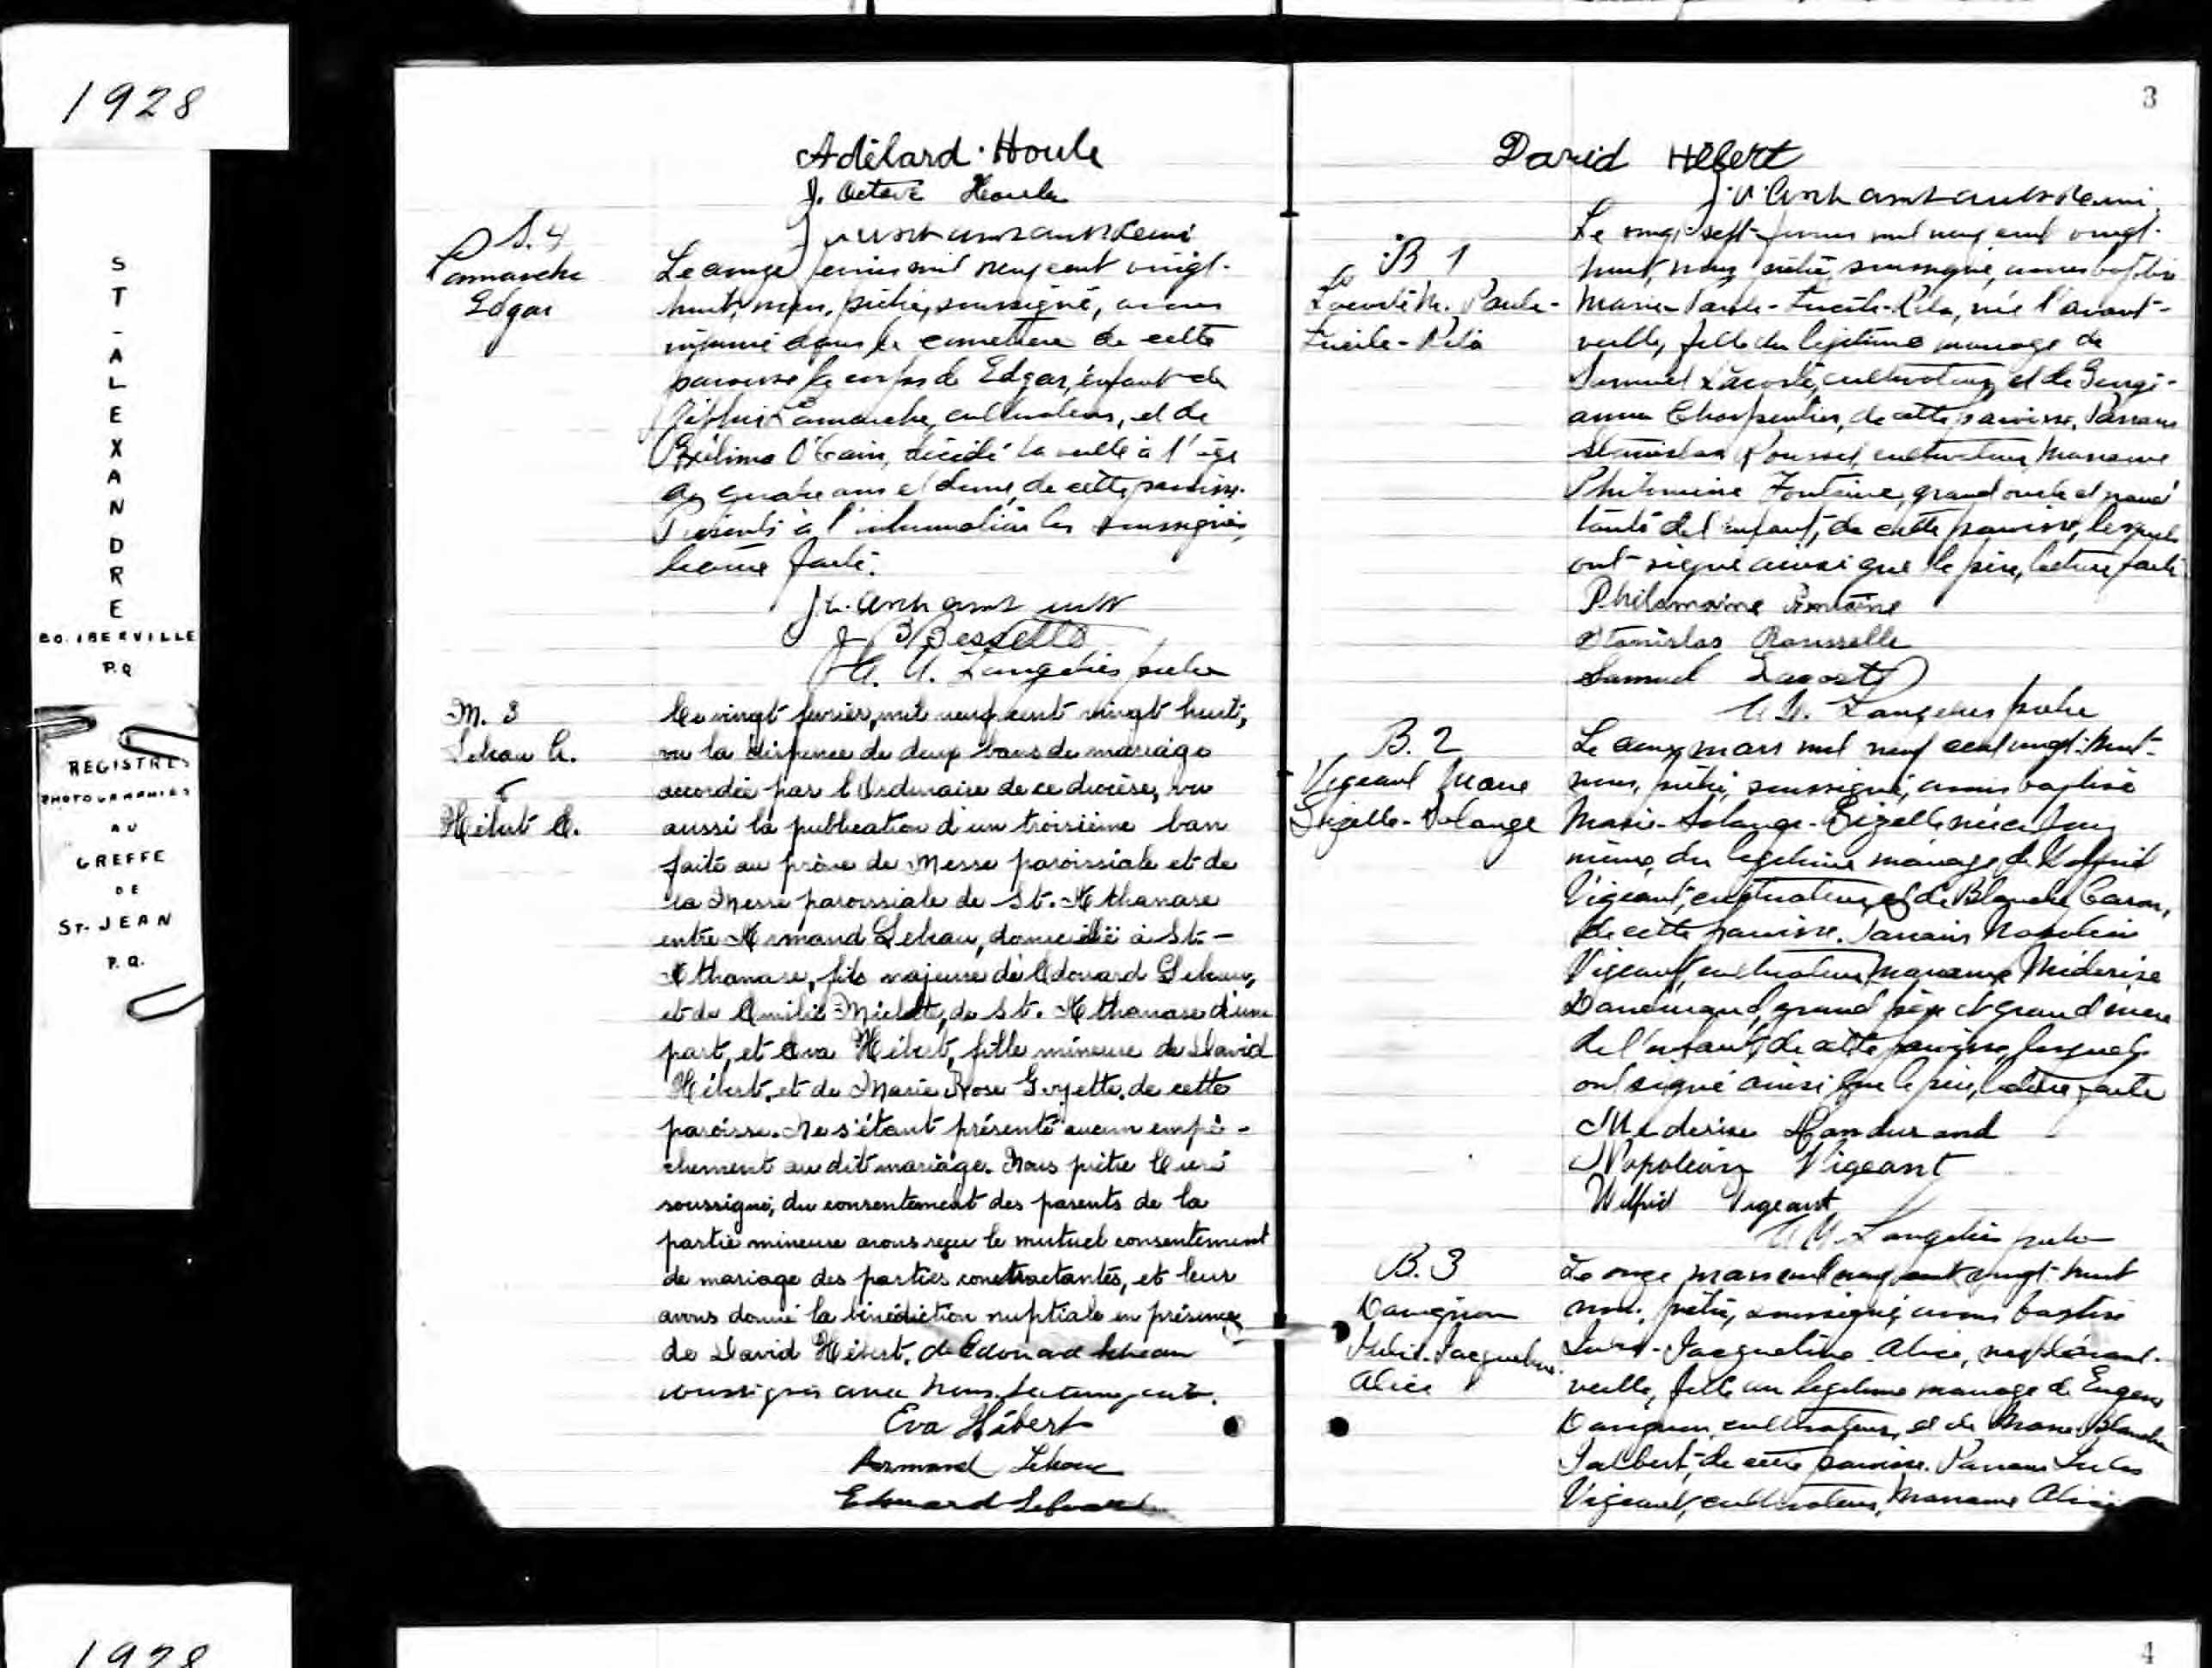 1928
ST-ALEXANDRE
CO. IBERVILLE
P.Q
REGISTRES
PHOTOGRAPHIES
AU
GREFFE
DE
ST-JEAN
P.Q.
Adélard Houle
J. Octave Houle
S. 4
Lamarche
Edgar
Le onze février mil neuf cent vingt-
huit, nous, prêtre, soussigné, avons
inhumé dans le cimetière de cette
paroisse le corps de Edgar, enfant de
Lamarche, cultivateur, et de
décédé la veille à l'âge
de quatre ans et demi, de cette paroisse.
Présents à l'inhumation les soussignés,
lecture faite.
J B Bessette
Langelier prêtre
M. 3
Lehou A.
&
Hébert E.
Le vingt février, mil neuf cent vingt huit,
vu la dispense de deux bans de mariage
accordée par l'Ordinaire de ce diocèse, vu
aussi la publication d'un troisième ban
faite au prône de Messe paroissiale et de
la Messe paroissiale de St. Athanase
entre Armand domicilié à St.-
Athanase, fils majeure de Edouard
et de Emilie de St. Athanase d'une
part, et Eva Hébert, fille mineure de David
Hébert, et de Marie Rose Goyette, de cette
paroisse. Ne s'étant présenté aucun empê-
chement au dit mariage. Nous prêtre Curé
soussigné, du consentement des parents de la
partie mineure avons reçu le mutuel consentement
de mariage des parties contractantes, et leur
avons donné la bénédiction nuptiale en présence
de David Hébert, de Edouard
soussignés avec nous. Lecture faite.
Eva Hébert
Armand
Edouard
3
David Hébert
B 1
Lacoste M. Paule-
Lucile-Rita
Le vingt-sept février mil neuf cent vingt-
huit, nous, prêtre, soussigné, avons baptisé
Marie-Paule-Lucile-Rita, née l'avant-
veille, fille du légitime mariage de
Samuel Lacoste, cultivateur, et de Georgi-
anna Charpentier, de cette paroisse. Parrain
Stanislas cultivateur, marraine
Philomène Fontaine, grand oncle et grand'
tante de l'enfant, de cette paroisse, lesquels
ont signé ainsi que le père, lecture faite
Philomaine Fontaine
Stanislas Rousselle
Samuel Lacoste
Langelier prêtre
B. 2
Vigeant Marie
Gizelle-Solange
Le onze mars mil neuf cent vingt-huit
nous, prêtre, soussigné, avons baptisé
Marie-Solange-Gizelle née ce jour
même, du légitime mariage de Wilfrid
Vigeant, cultivateur, et de Blanche Caron,
de cette paroisse. Parrain Napoléon
Vigeant, cultivateur, marraine Médérise
Dandurand, grand père et grand'mère
de l'enfant, de cette paroisse, lesquels
ont signé ainsi que le père, lecture faite
Mederise Dandurand
Napoléon Vigeant
Wilfrid Vigeant
Langelier prêtre
B. 3
Jacqueline
Alice
Le onze mars mil neuf cent vingt-huit
nous, prêtre, soussigné, avons baptisé
Jacqueline-Alice, née l'avant-
veille, fille du légitime mariage de Eugène
cultivateur, et de Marie Blanche
Jalbert, de cette paroisse. Parrain
Vigeant, cultivateur, marraine
1928
4